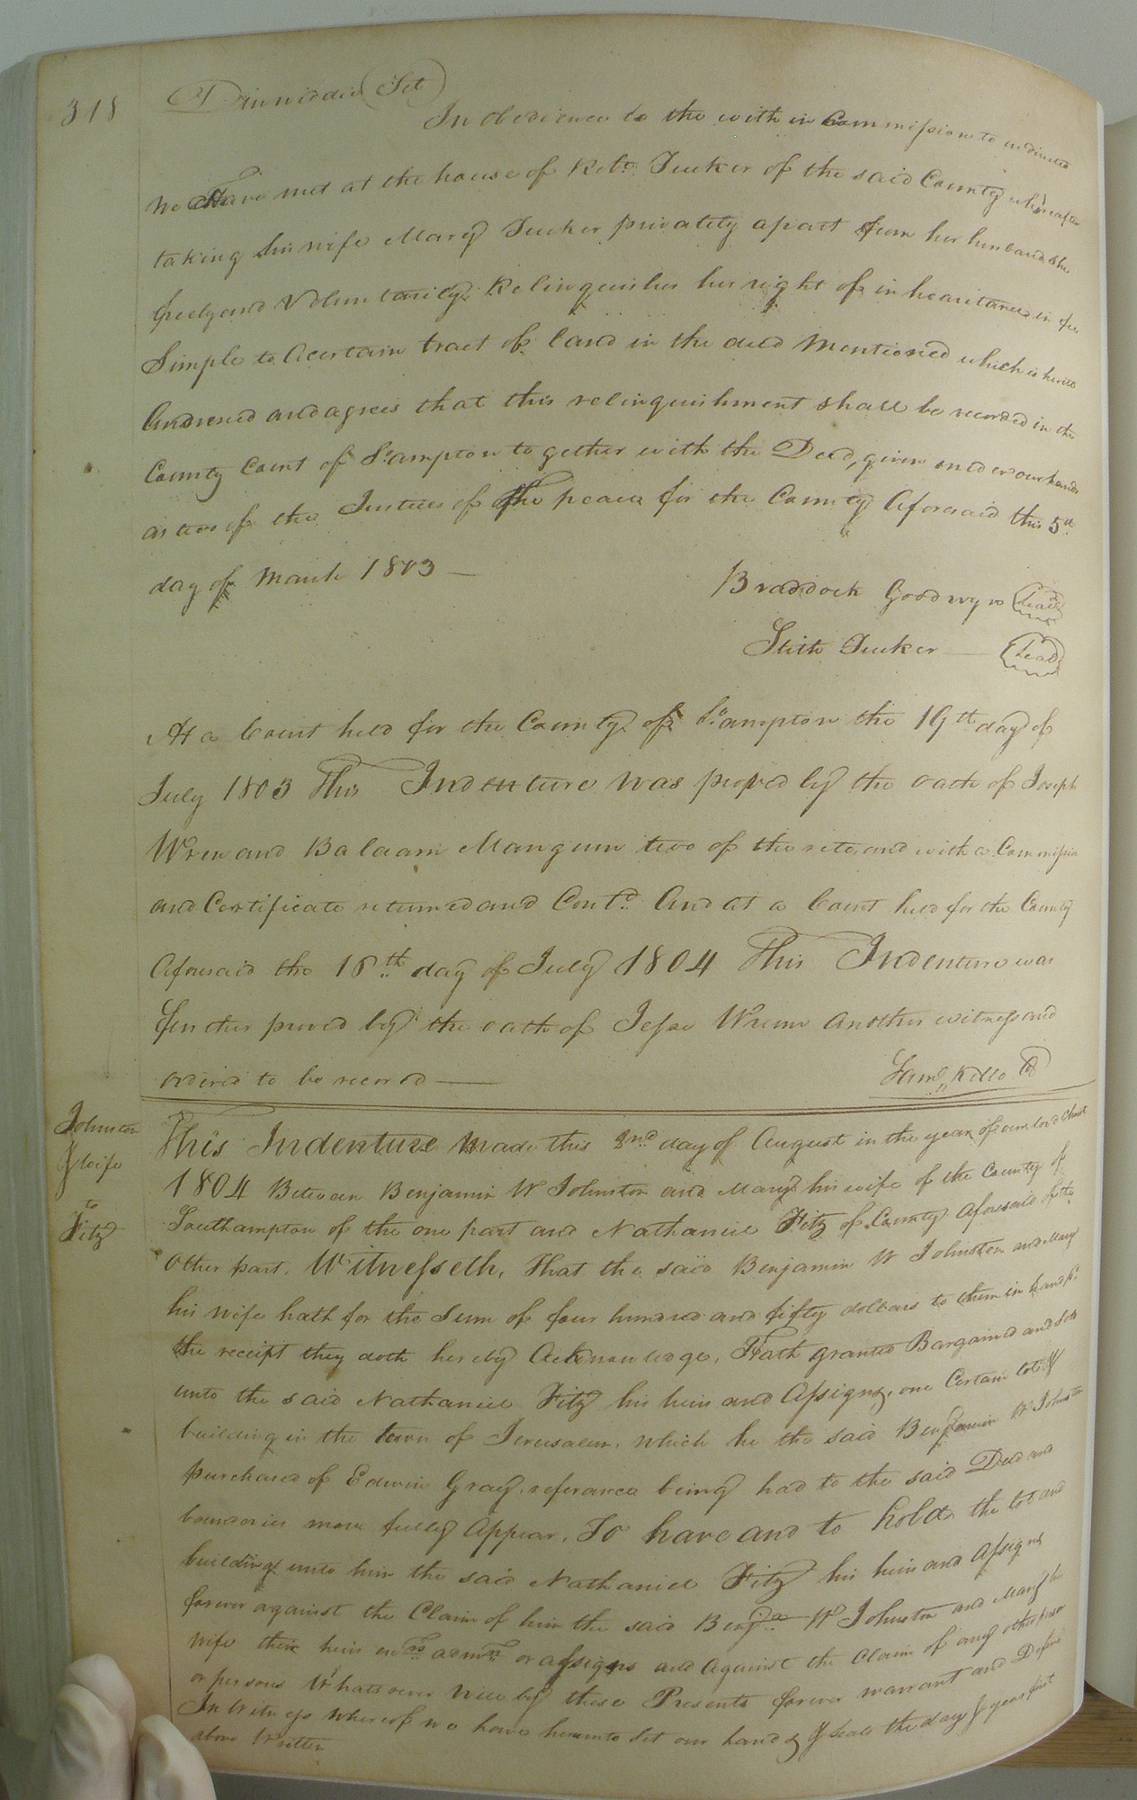 318
Dinwiddie (Sct)
In obedience to the with in Commission to us directed
We Have met at the house of Robt. Tucker of the said County where after
taking his wife Mary Tucker privately apart from her husband she
freely and Voluntarily Relinquishes her right of inheartance in fee
Simple to a certain tract of land in the deed Mentioned which is hereto
Annexed and agrees that this relinquishment shall be recorded in the
County Court of S.ampton together with the Deed, given under our hands
as two of the Justices of The peace for the County Aforesaid this 5th
day of March 1803
Braddock Goodwyn (Seal)
Stith Tucker (Seal)
At a Court held for the County of S.ampton the 19th day of
July 1803 This Indenture was proved by the oath of Joseph
Wren and Balaam Mangum two of the wits. and with a Commission
and Certificate returned and Contd. And at a Court held for the County
Aforesaid the 16th day of July 1804 This Indenture was
further proved by the oath of Jesse Wrenn another witness and
ordered to be record
Saml. Kello C
Johnston
& wife
to
Fitz
This Indenture Made this 2nd day of August in the year of our lord Christ
1804 Between Benjamin W Johnston and Mary his wife of the County of
Southampton of the one part and Nathaniel Fitz of County Aforesaid of the
other part. Witnesseth, That the said Benjamin W Johnston and Mary
his wife hath for the Sum of four hundred and fifty dollars to them in hand pd.
the receipt they doth hereby Acknowledge, Hath granted Bargained and Sold
unto the said Nathaniel Fitz his heirs and Assigns, one Certain lot &
building in the town of Jerusalem, which he the said Benjamin W Johnston
purchased of Edwin Gray, referance being had to the said Deed and
boundaries more fully Appear. To have and to hold the lot and
building unto him the said Nathaniel Fitz his heirs and Assigns
forever against the Claim of him the said Benja. W Johnston and Mary his
wife their heirs exrs. admrs. or assigns and against the Claim of any other person
or persons Whatsoever Will by these Presents forever warrant and Defend
In Witness whereof we have hereunto Set our hands & Seals the day & year first
above Written